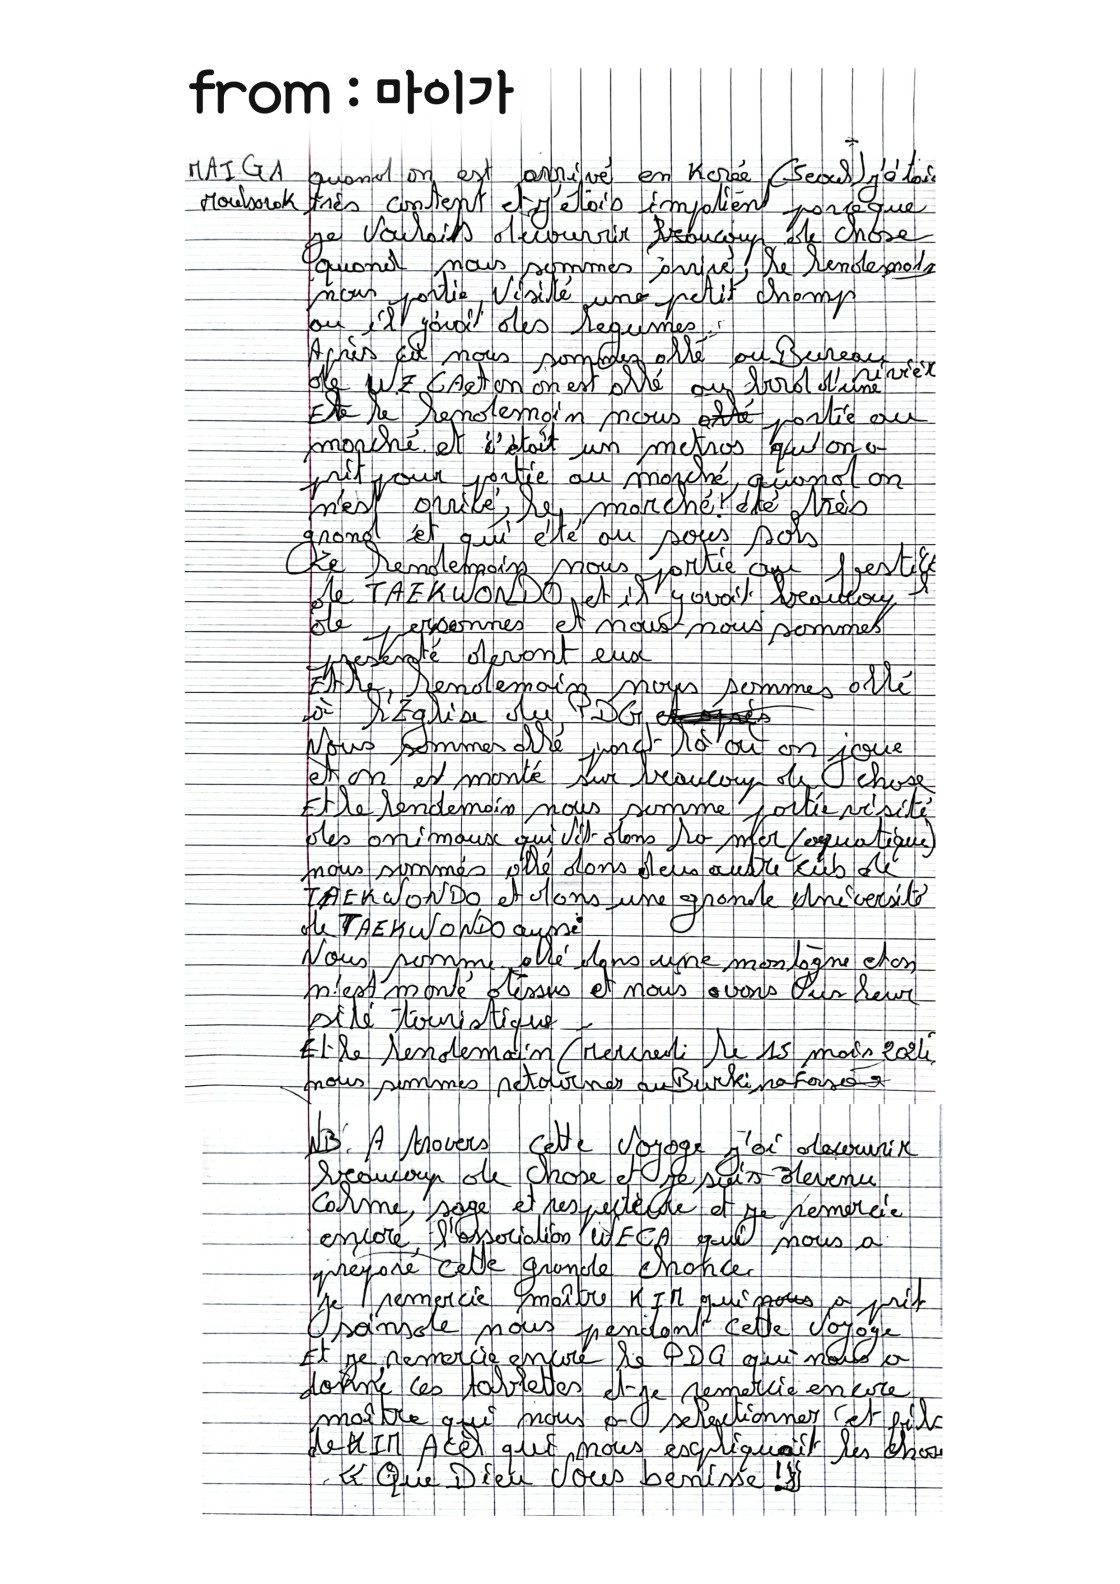 from : 마이가
MAIGA quand on est arrivé en Korée (Seoul) j'étais
Moubarak très content et j'étais impatient parceque
je voulais découvrir beaucoup de chose
quand nous sommes arrivé, le lendemain
nous partie visité une petit champ
ou il yavait des legumes.
Après ça nous sommes allé au Bureau
de WECAct on on est allé au bord d'une rivièr
Et le lendemain nous partie au
marché et c'était un metros qu'on a
prit pour partie au marché, quand on
n'est arrivé, le marché été très
grand et qui été au sous sols
Le lendemain nous partie au festi
de TAEKWONDO et il yavait beaucoup
de personnes et nous nous sommes
presenté devant eux
Et le lendemain nous sommes allé
à l'Église du PDG
Nous sommes allé là où on joue
et on est monté sur beaucoup de chose
Et le lendemain nous somme partie visité
des animaux qui vit dans la mer (aquatique)
nous sommes allé dans deux autre club de
TAEKWONDO et dans une grande Université
de TAEKWONDO aussi
Nous somme allé dans une montagne et on
n'est monté dessus et nous avons vus leur
sité touristique
Et le lendemain (Mercredi le 15 mais 2024
nous sommes retourner au Burkina Faso
NB: A travers cette voyage j'ai découvrir
beaucoup de chose et je suis devenu
calme, sage et respectère et je remercie
encore l'association WECA qui nous a
preparé cette grande chance.
je remercie maître KIM qui nous a prit
soin de nous pendant cette voyage
Et je remercie encore le PDG qui nous a
donné ces tablettes et je remercie encore
maître qui nous a selectionner et
de KIM qui nous expliquait les chos
« Que Dieu vous bénisse !!»